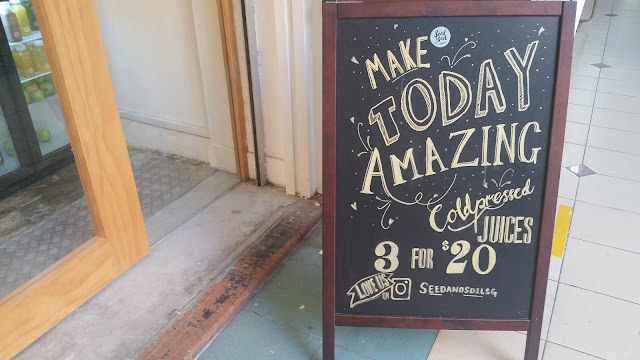 MAKE
TODAY
AMAZING
Coldpressed
JUICES
3 FOR $20
LIKE US
ON
SEEDANDSOILSG